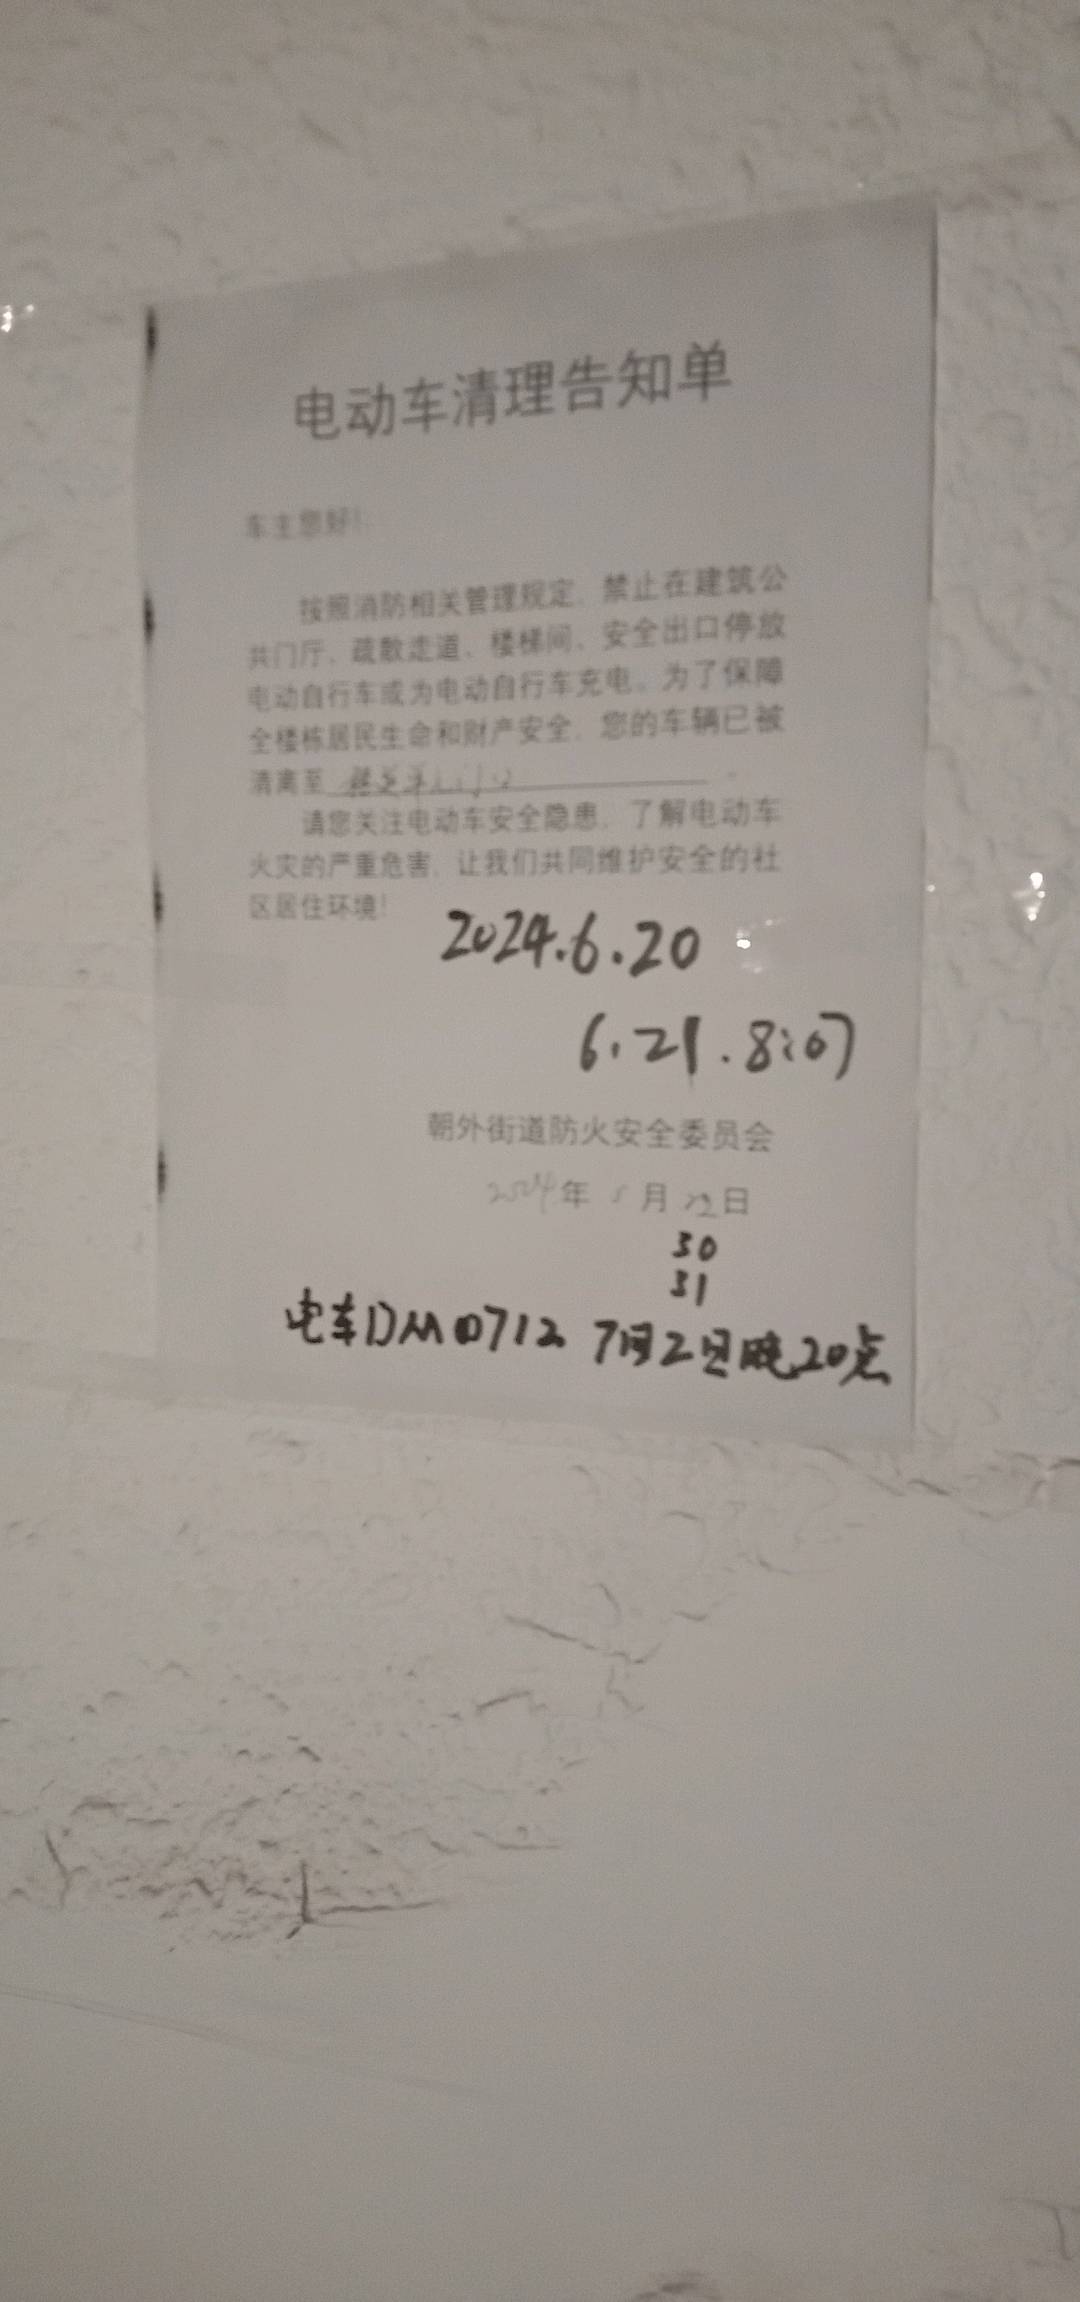 电动车清理告知单
车主您好!
按照消防相关管理规定，禁止在建筑公
共门厅、疏散走道、楼梯间、安全出口停放
电动自行车或为电动自行车充电。为了保障
全楼栋居民生命和财产安全，您的车辆已被
清离至
请您关注电动车安全隐患，了解电动车
火灾的严重危害，让我们共同维护安全的社
区居住环境!
2024.6.20
6.21.8:07
朝外街道防火安全委员会
2024年5月22日
30
31
电车DM0712 7月2日晚20点